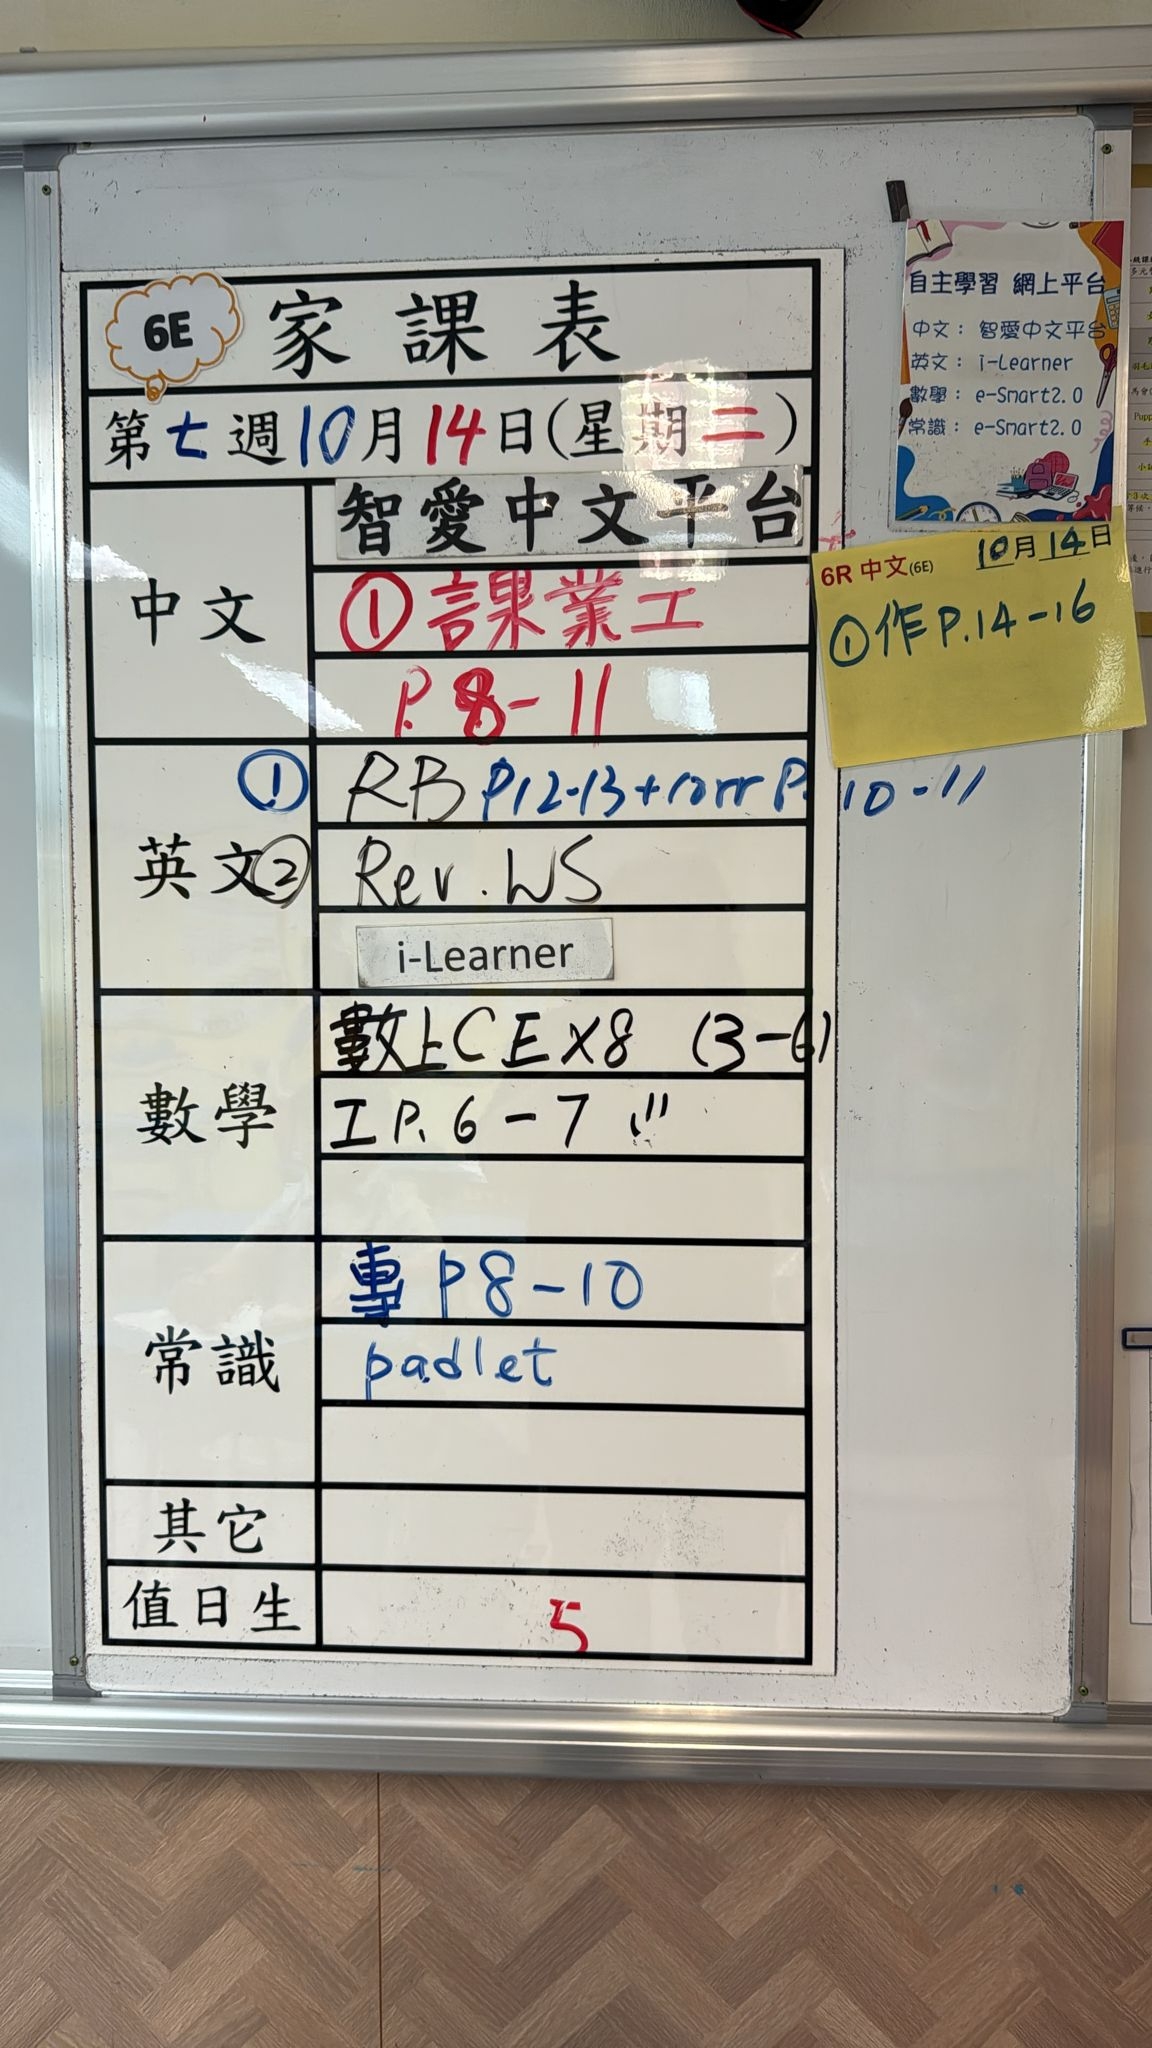 6E 家課表
第七週10月14日(星期二)
中文
智愛中文平台
①課業工
P. 8-11
英文
① RB P12-13+corr P. 10-11
② Rev. WS
i-Learner
數學
數上C EX8 (3-6)
工P. 6-7
常識
專 P8-10
padlet
其它
值日生
5
自主學習 網上平台
中文： 智愛中文平台
英文： i-Learner
數學： e-Smart2.0
常識： e-Smart2.0
6R 中文(6E) 10月14日
①作P.14-16